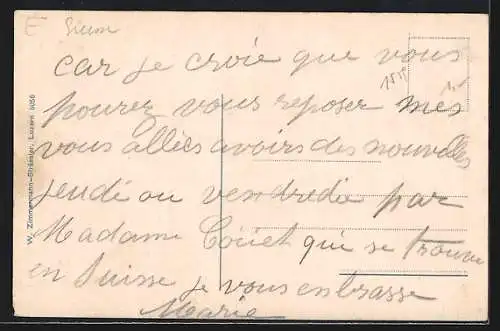 E
car je croie que vous
pourez vous reposer mes
vous allées avoirs des nouvelles
jeudi ou vendredie par
Madame Couet qui se trouve
en Suisse je vous enbrasse
Marie
W. Zimmermann-Strässler, Luzern 5056